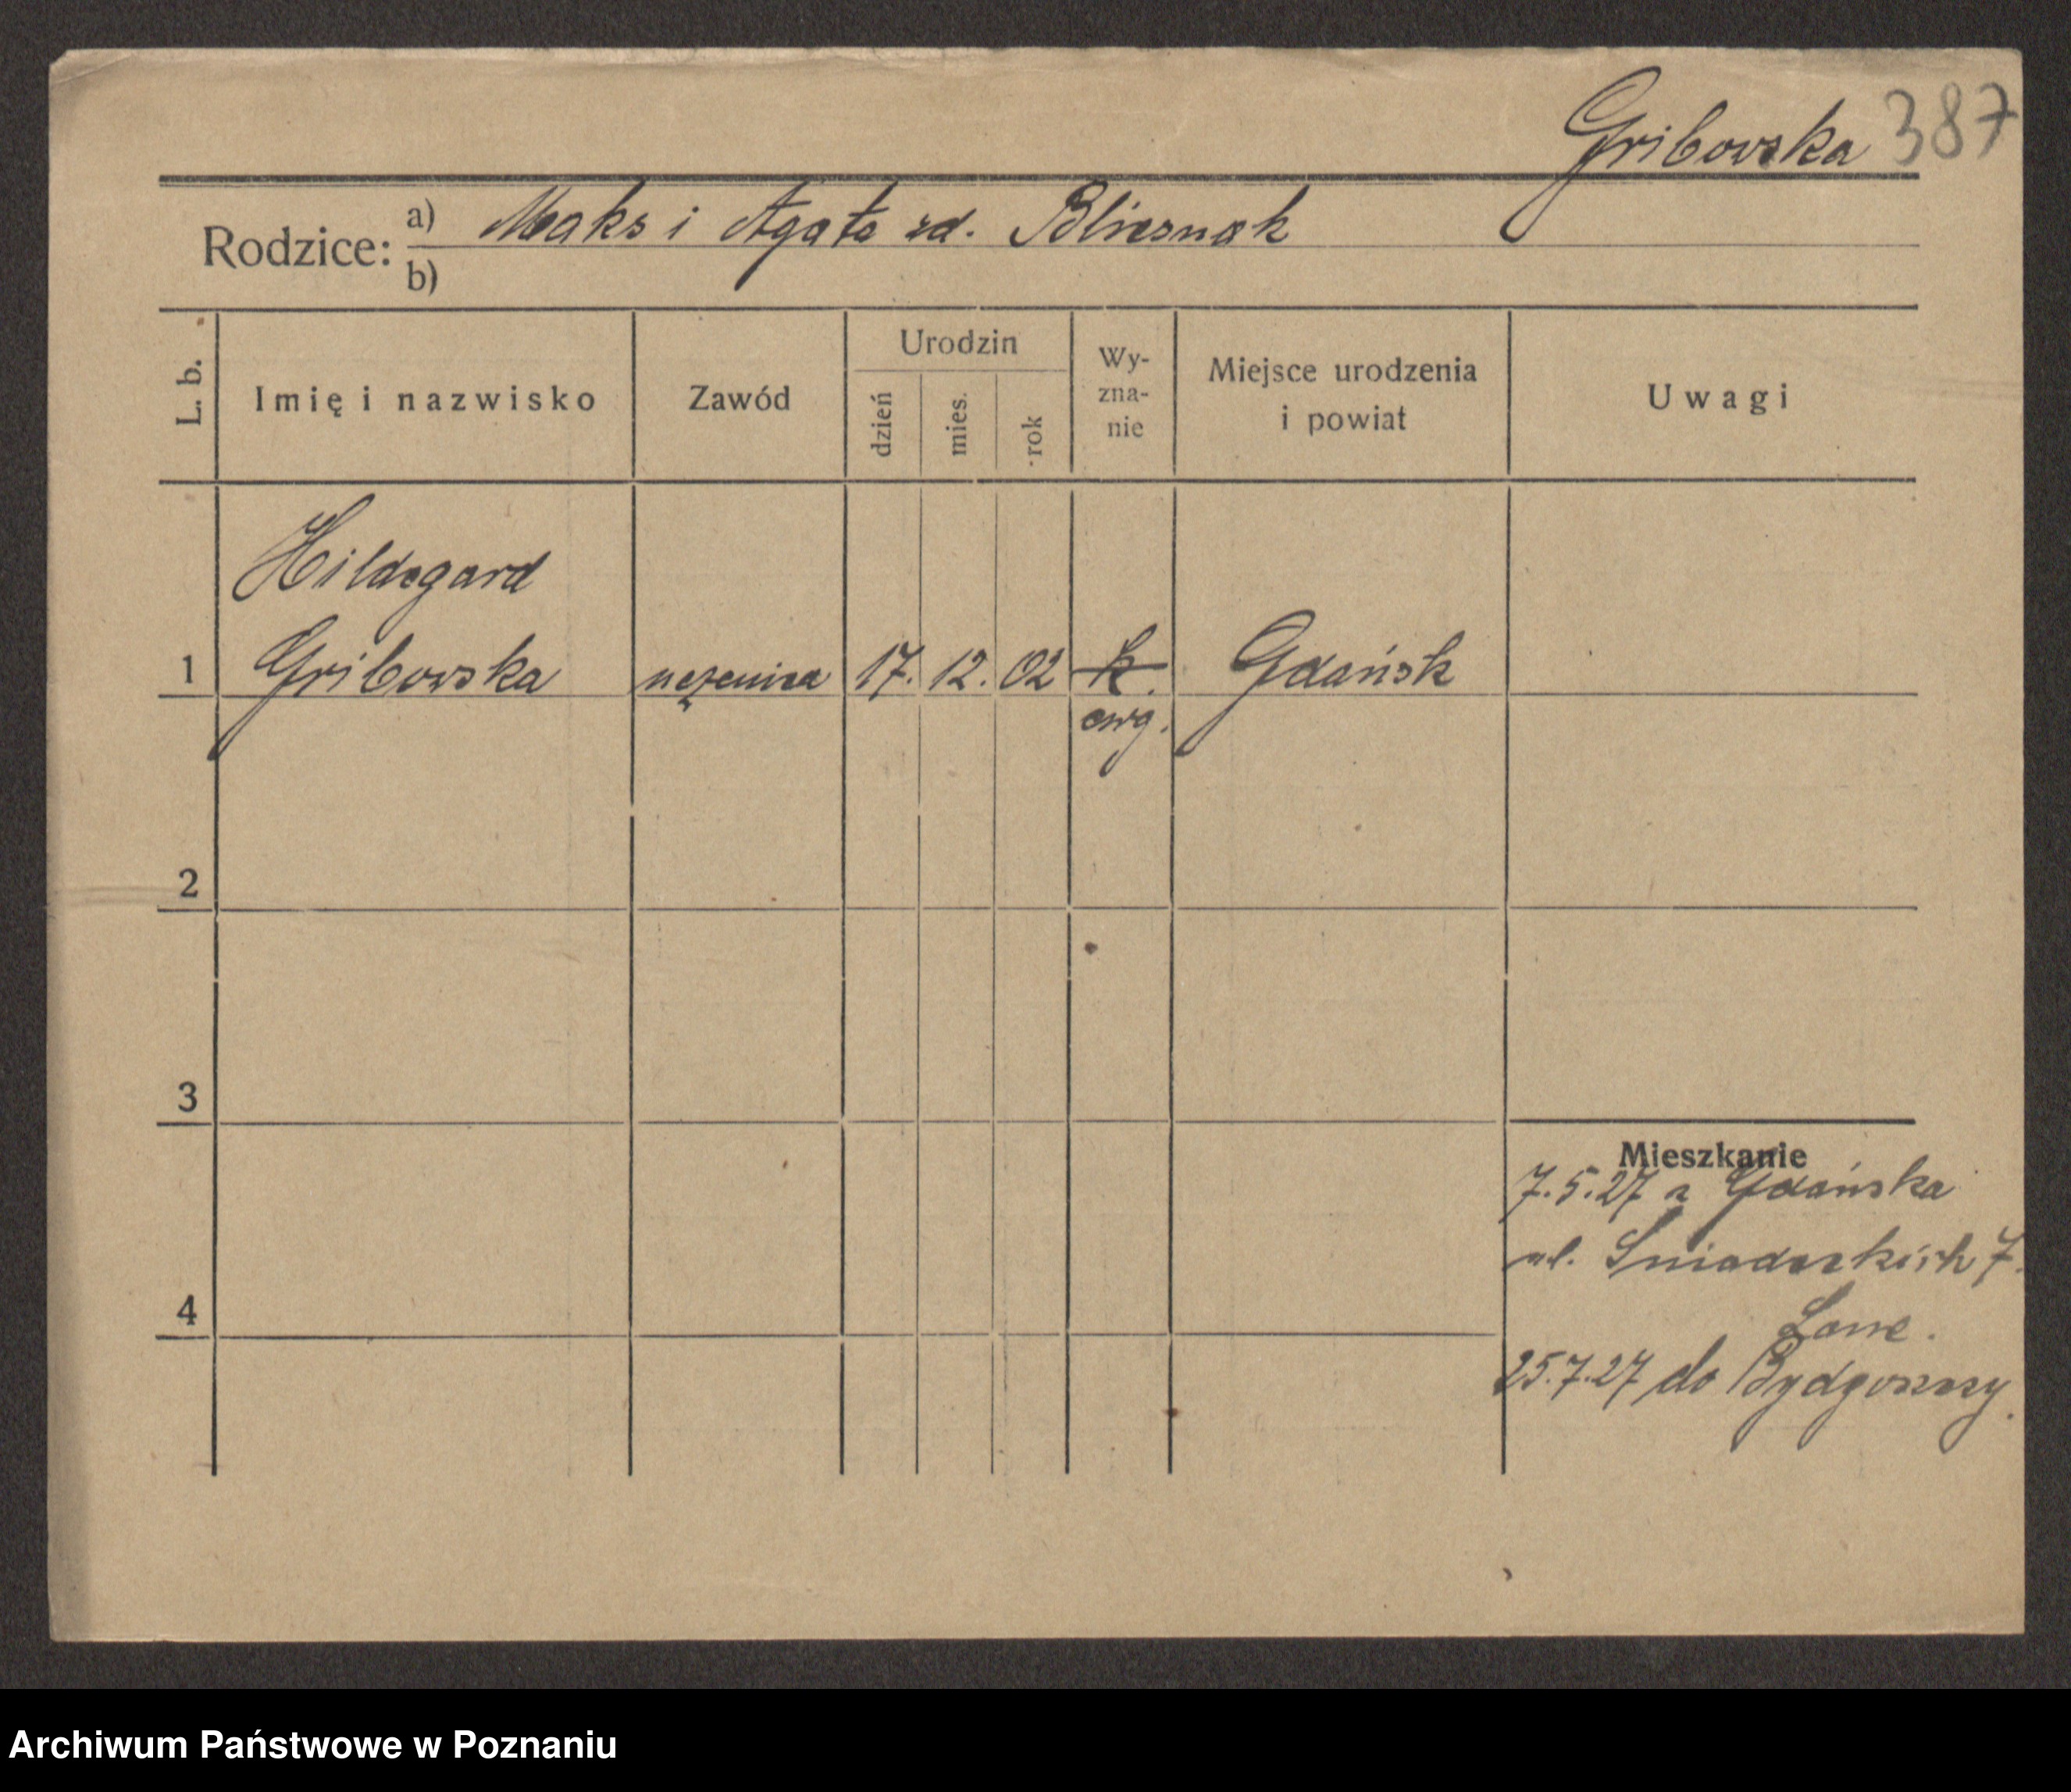 Gribowska 387
Rodzice: a) Maks i Agata zd. Bliesnak
b)
L. b.
Imię i nazwisko
Zawód
Urodzin
dzień
mies.
rok
Wy-
zna-
nie
Miejsce urodzenia
i powiat
Uwagi
Hildegard
1 Gribowska uczenica 17. 12. 02 k. Gdańsk
ewg.
2
3
4
Mieszkanie
7.5.27 z Gdańska
ul. Sniadeckich 7.
25.7.27 do Bydgoszczy.
Archiwum Państwowe w Poznaniu